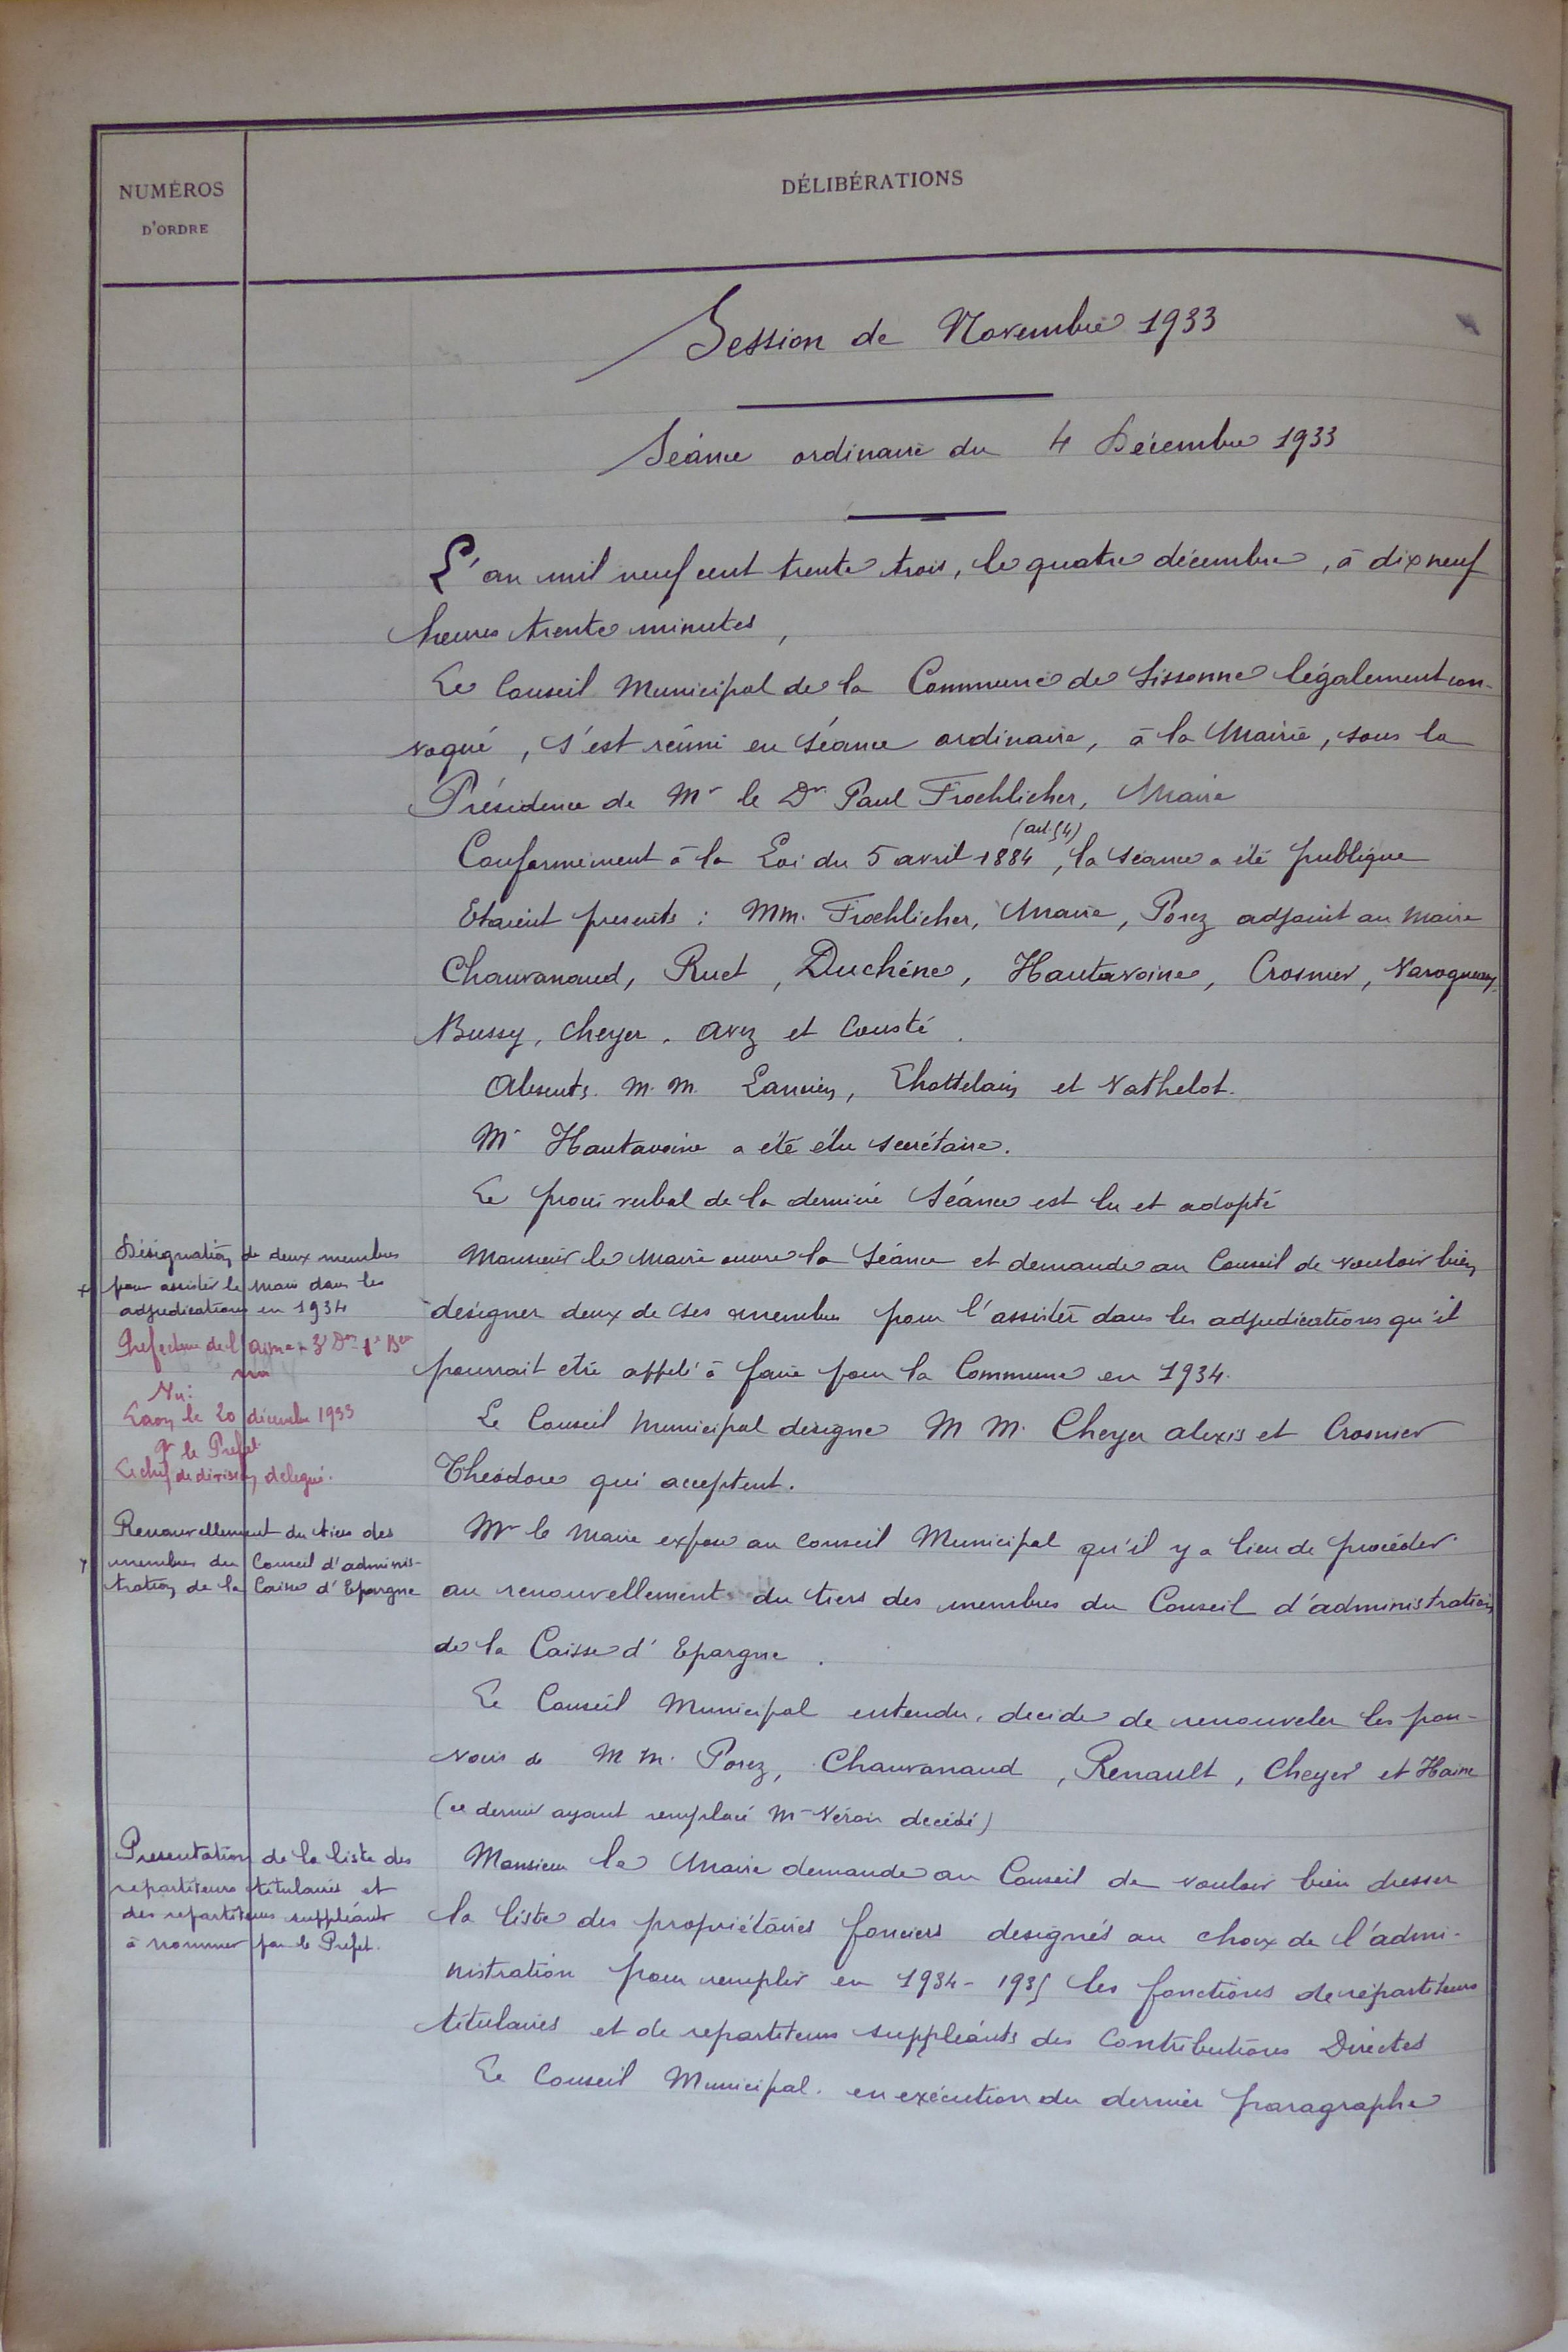 NUMÉROS
D'ORDRE
DÉLIBÉRATIONS
Session de Novembre 1933
Séance ordinaire du 4 Décembre 1933
L'an mil neuf cent trente trois, le quatre décembre, à dix neuf
heures trente minutes,
Le Conseil Municipal de la Commune de Sissonne légalement con-
voqué, s'est réuni en séance ordinaire, à la Mairie, sous la
Présidence de Mr le Dr Paul Froehlicher, Maire
(art 54)
Conformément à la Loi du 5 avril 1884, la séance a été publique
Etaient presents : MM. Froehlicher, Maire, Porez adjoint au Maire
Chauvanaud, Ruet, Duchêne, Hautavoine, Crosnier, Varoqueaux,
Bussy, Cheyer, Avez et Cousté.
Absents. M.M. Lancien, Chattelain et Vathelot.
Mr Hautavoine a été élu secrétaire.
Le procès verbal de la dernière séance est lu et adopté
Désignation de deux membres
pour assister le Maire dans les
adjudications en 1934
Préfecture de l'Aisne - 3e Don 1er Beau
Vu:
Laon le 20 décembre 1933
Pr le Préfet
Le chef de division délégué.
Monsieur le Maire ouvre la séance et demande au Conseil de vouloir bien
désigner deux de ses membres pour l'assister dans les adjudications qu'il
pourrait être appelé à faire pour la Commune en 1934.
Le Conseil Municipal désigne M M. Cheyer Alexis et Crosnier
Théodore qui acceptent.
Renouvellement du tiers des
membres du Conseil d'adminis-
tration de la Caisse d'Epargne
Mr le Maire expose au conseil Municipal qu'il y a lieu de procéder
au renouvellement du tiers des membres du Conseil d'administration
de la Caisse d'Epargne.
Le Conseil Municipal entendu, décide de renouveler les pou-
voirs de M M. Porez, Chauvanaud, Renault, Cheyer et Haine
(ce dernier ayant remplacé Mr Véron décédé)
Presentation de la liste des
repartiteurs titulaires et
des repartiteurs suppléants
à nommer par le Préfet.
Monsieur le Maire demande au Conseil de vouloir bien dresser
la liste des propriétaires fonciers désignés au choix de l'admi-
nistration pour remplir en 1934-1935 les fonctions de répartiteurs
titulaires et de repartiteurs suppléants des Contributions Directes
Le Conseil Municipal. en exécution du dernier paragraphe